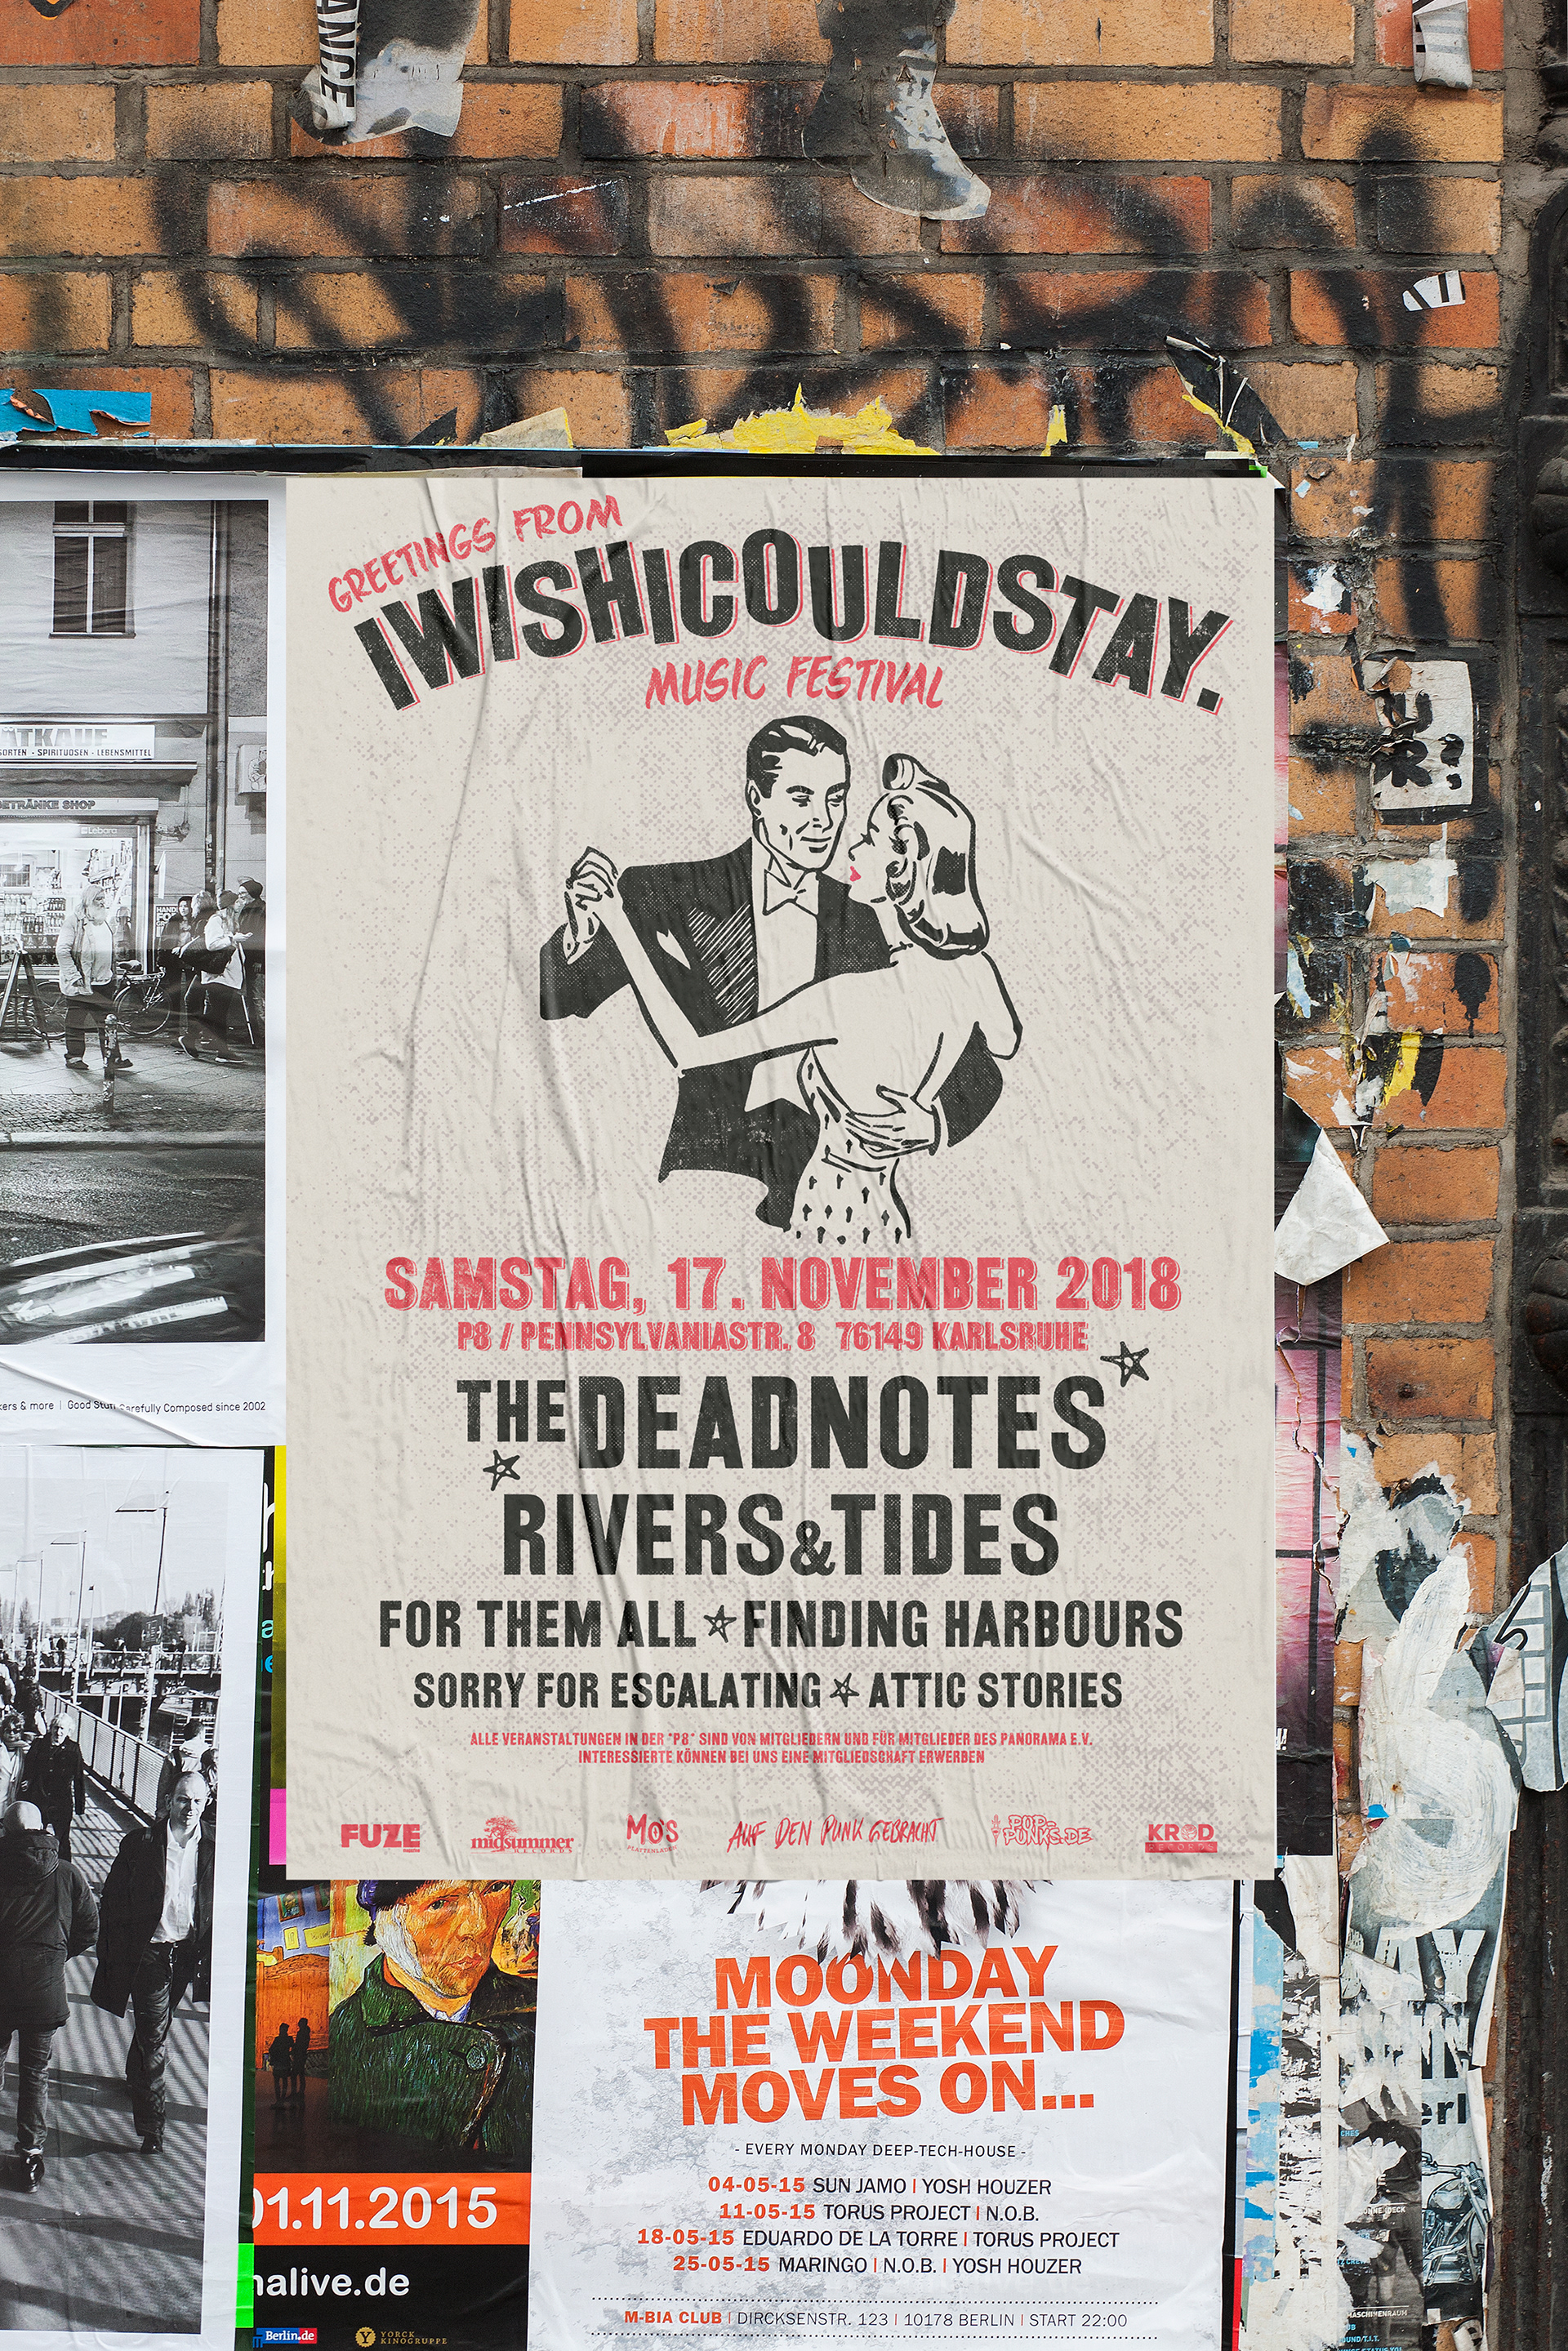 ANCE
GREETINGS FROM
IWISHICOULDSTAY.
MUSIC FESTIVAL
SAMSTAG, 17. NOVEMBER 2018
P8 / PENNSYLVANIASTR. 8 76149 KARLSRUHE
THE DEADNOTES
RIVERS & TIDES
FOR THEM ALL FINDING HARBOURS
SORRY FOR ESCALATING ATTIC STORIES
ALLE VERANSTALTUNGEN IN DER "P8" SIND VON MITGLIEDERN UND FÜR MITGLIEDER DES PANORAMA E.V.
INTERESSIERTE KÖNNEN BEI UNS EINE MITGLIEDSCHAFT ERWERBEN
FUZE
midsummer RECORDS
MOS PLATTENLADEN
AUF DEN PUNK GEBRACHT
POP-PUNKS.DE
KROD RECORDS
ÄTKAUF
SORTEN · SPIRITUOSEN · LEBENSMITTEL
GETRÄNKE SHOP
Lebara
kers & more | Good Stuff Carefully Composed since 2002
MOONDAY
THE WEEKEND
MOVES ON...
- EVERY MONDAY DEEP-TECH-HOUSE -
04-05-15 SUN JAMO | YOSH HOUZER
11-05-15 TORUS PROJECT | N.O.B.
18-05-15 EDUARDO DE LA TORRE | TORUS PROJECT
25-05-15 MARINGO | N.O.B. | YOSH HOUZER
M-BIA CLUB | DIRCKSENSTR. 123 | 10178 BERLIN | START 22:00
01.11.2015
nalive.de
Berlin.de
YORCK
KINOGRUPPE
MASCHINENRAUM